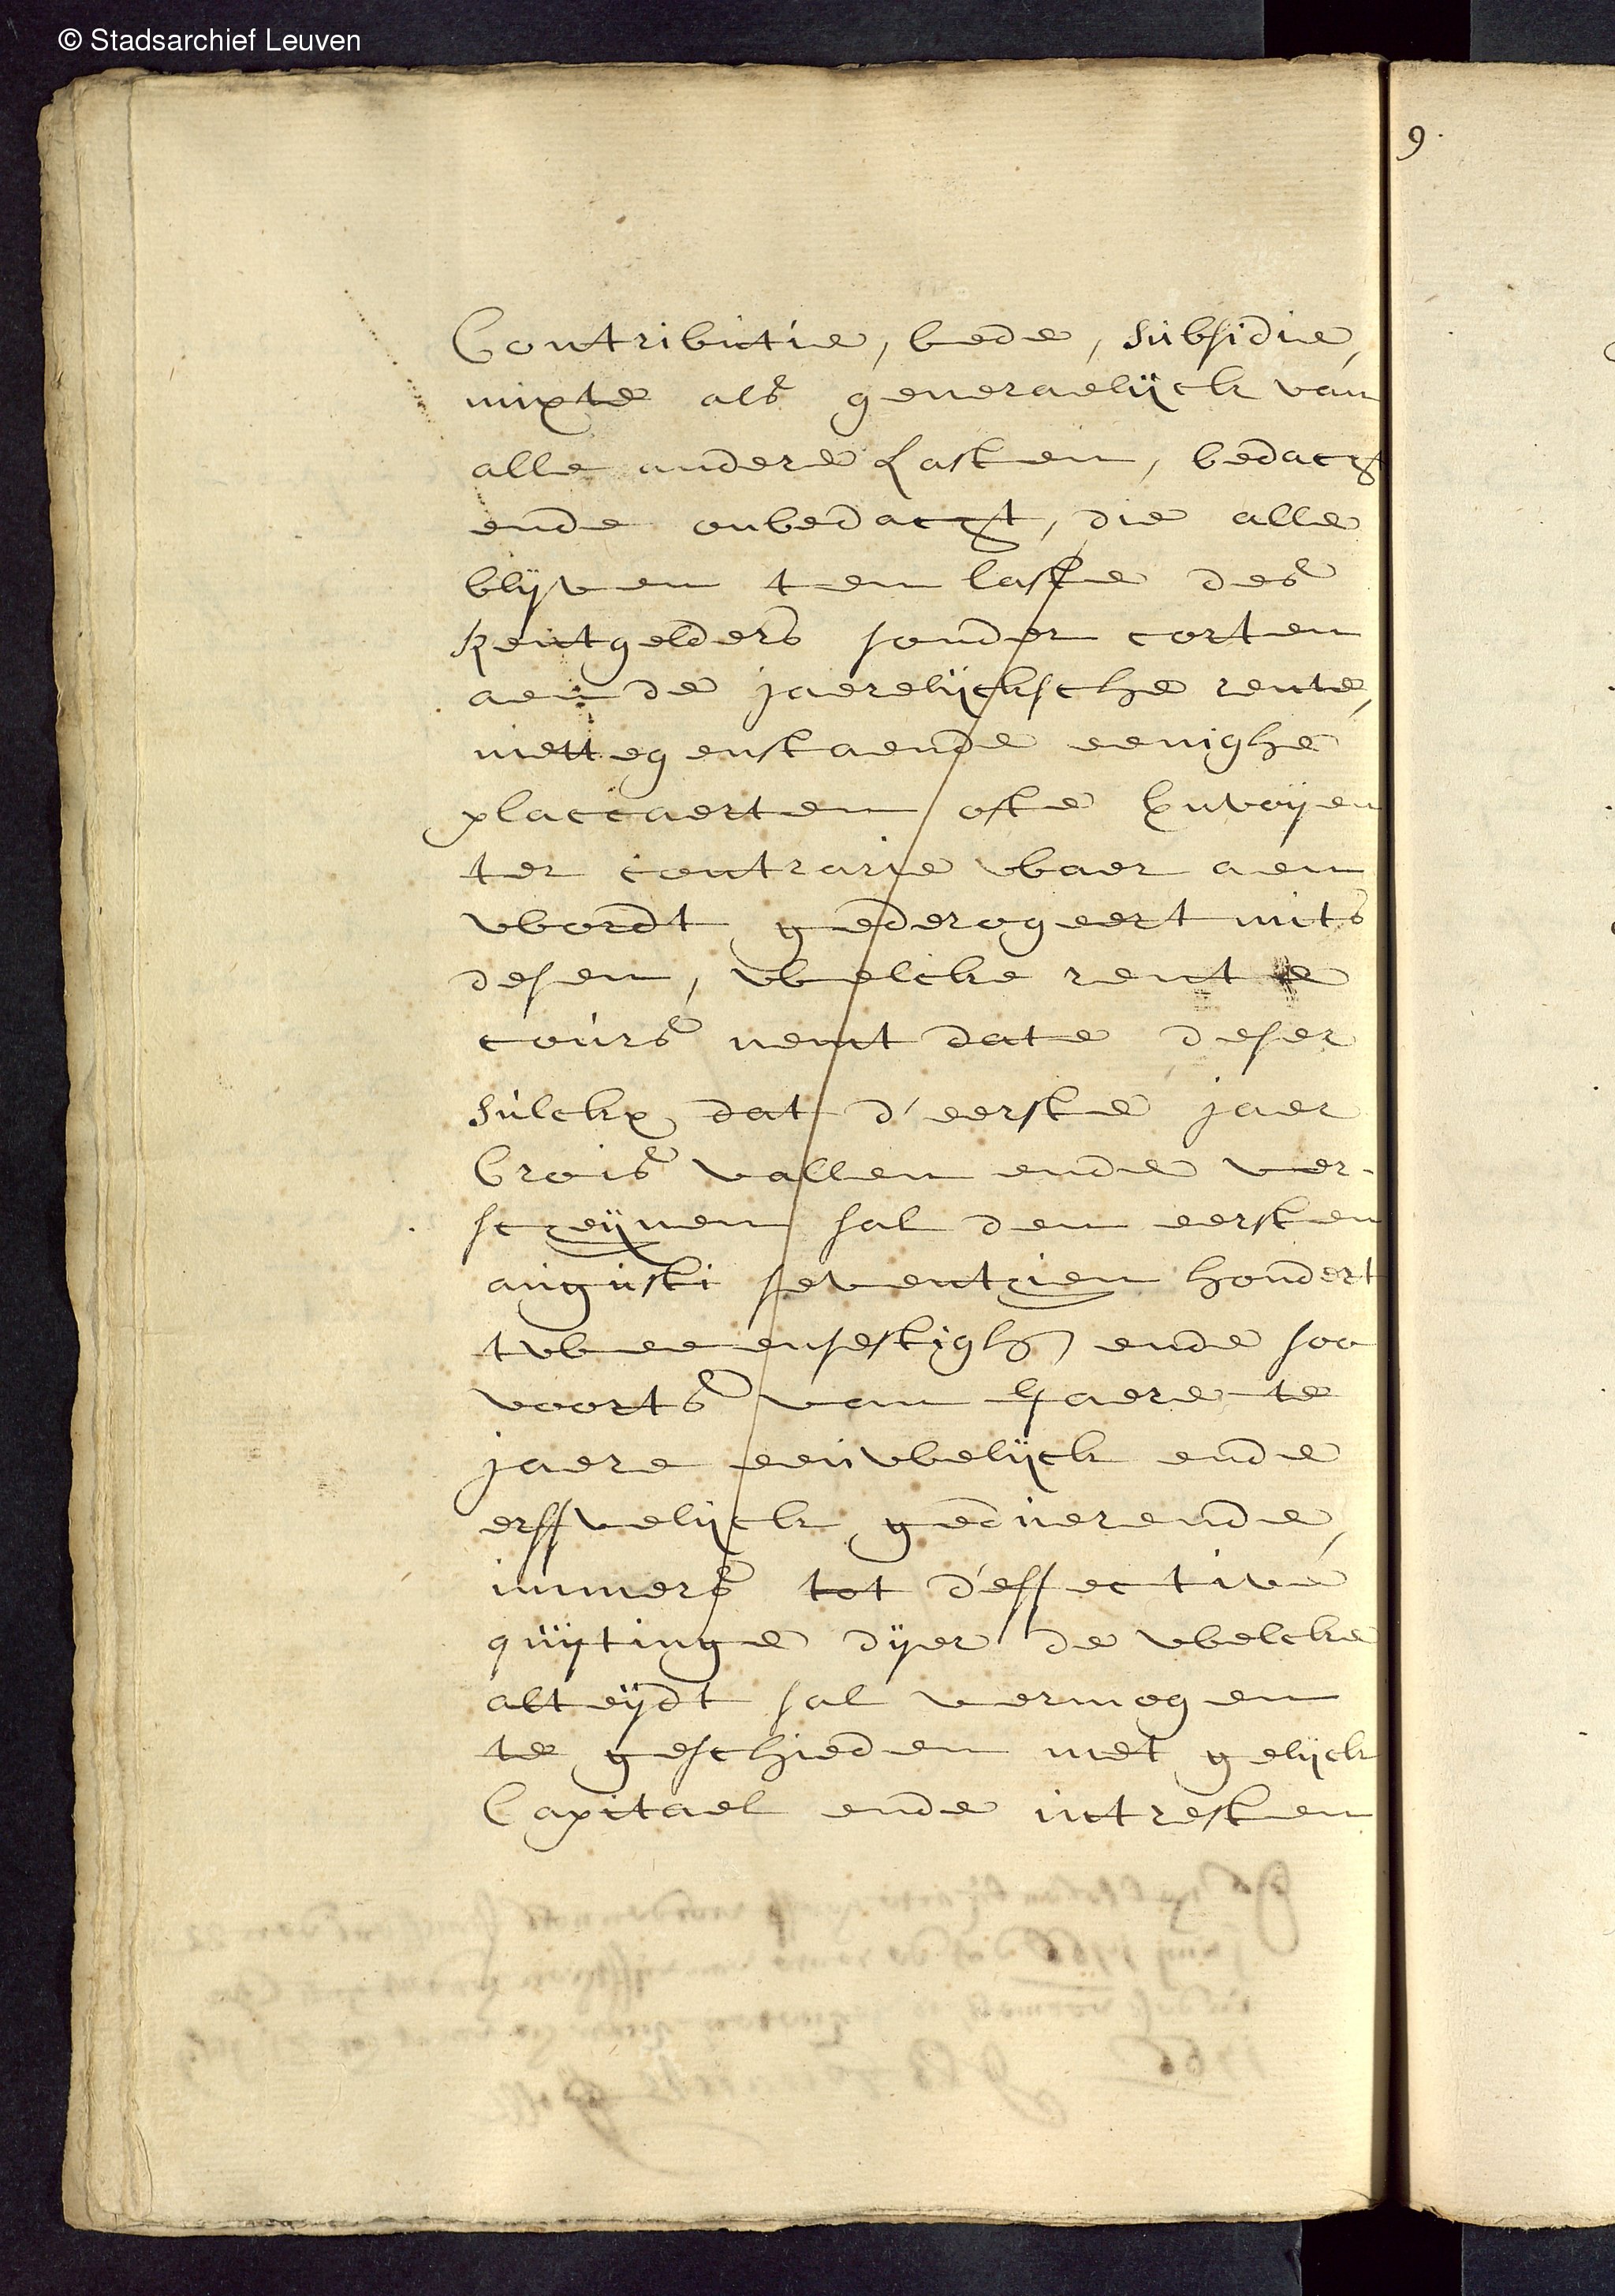 © Stadsarchief Leuven
9.
Contributie, bede, subsidie,
mixte als generaelijck van
alle andere Lasten, bedacht
ende onbedacht, die alle
blijven ten laste des
Rentgelders sonder corten
aen de jaerelijcksche rente,
niettegenstaende eenighe
placcaerten ofte
ter contrarie waer aen
wordt gederogeert mits
desen, welcke rente
cours nemt date deser
sulckx dat d'eerste jaer
Crois vallen ende ver-
scheijnen sal den eersten
augusti seventhien hondert
tweeensestigh ende soo
voorts van Jaere te
jaere eeuwelijck ende
erffvelijck geduerende,
immers tot d'effective
quijtinge dijer de welcke
alteijdt sal vermogen
te geschieden met gelijck
Capitael ende intresten